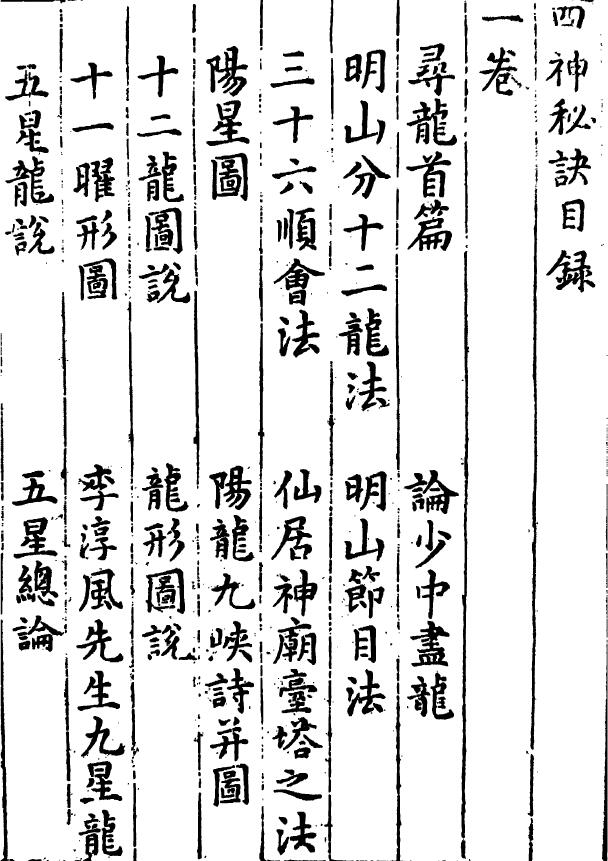 四神秘訣目録
一卷
尋龍首篇 論少中盡龍
明山分十二龍法 明山節目法
三十六順會法 仙居神廟臺塔之法
陽星圖 陽龍九峽詩并圖
十二龍圖說 龍形圖說
十一曜形圖 李淳風先生九星龍
五星龍說 五星總論